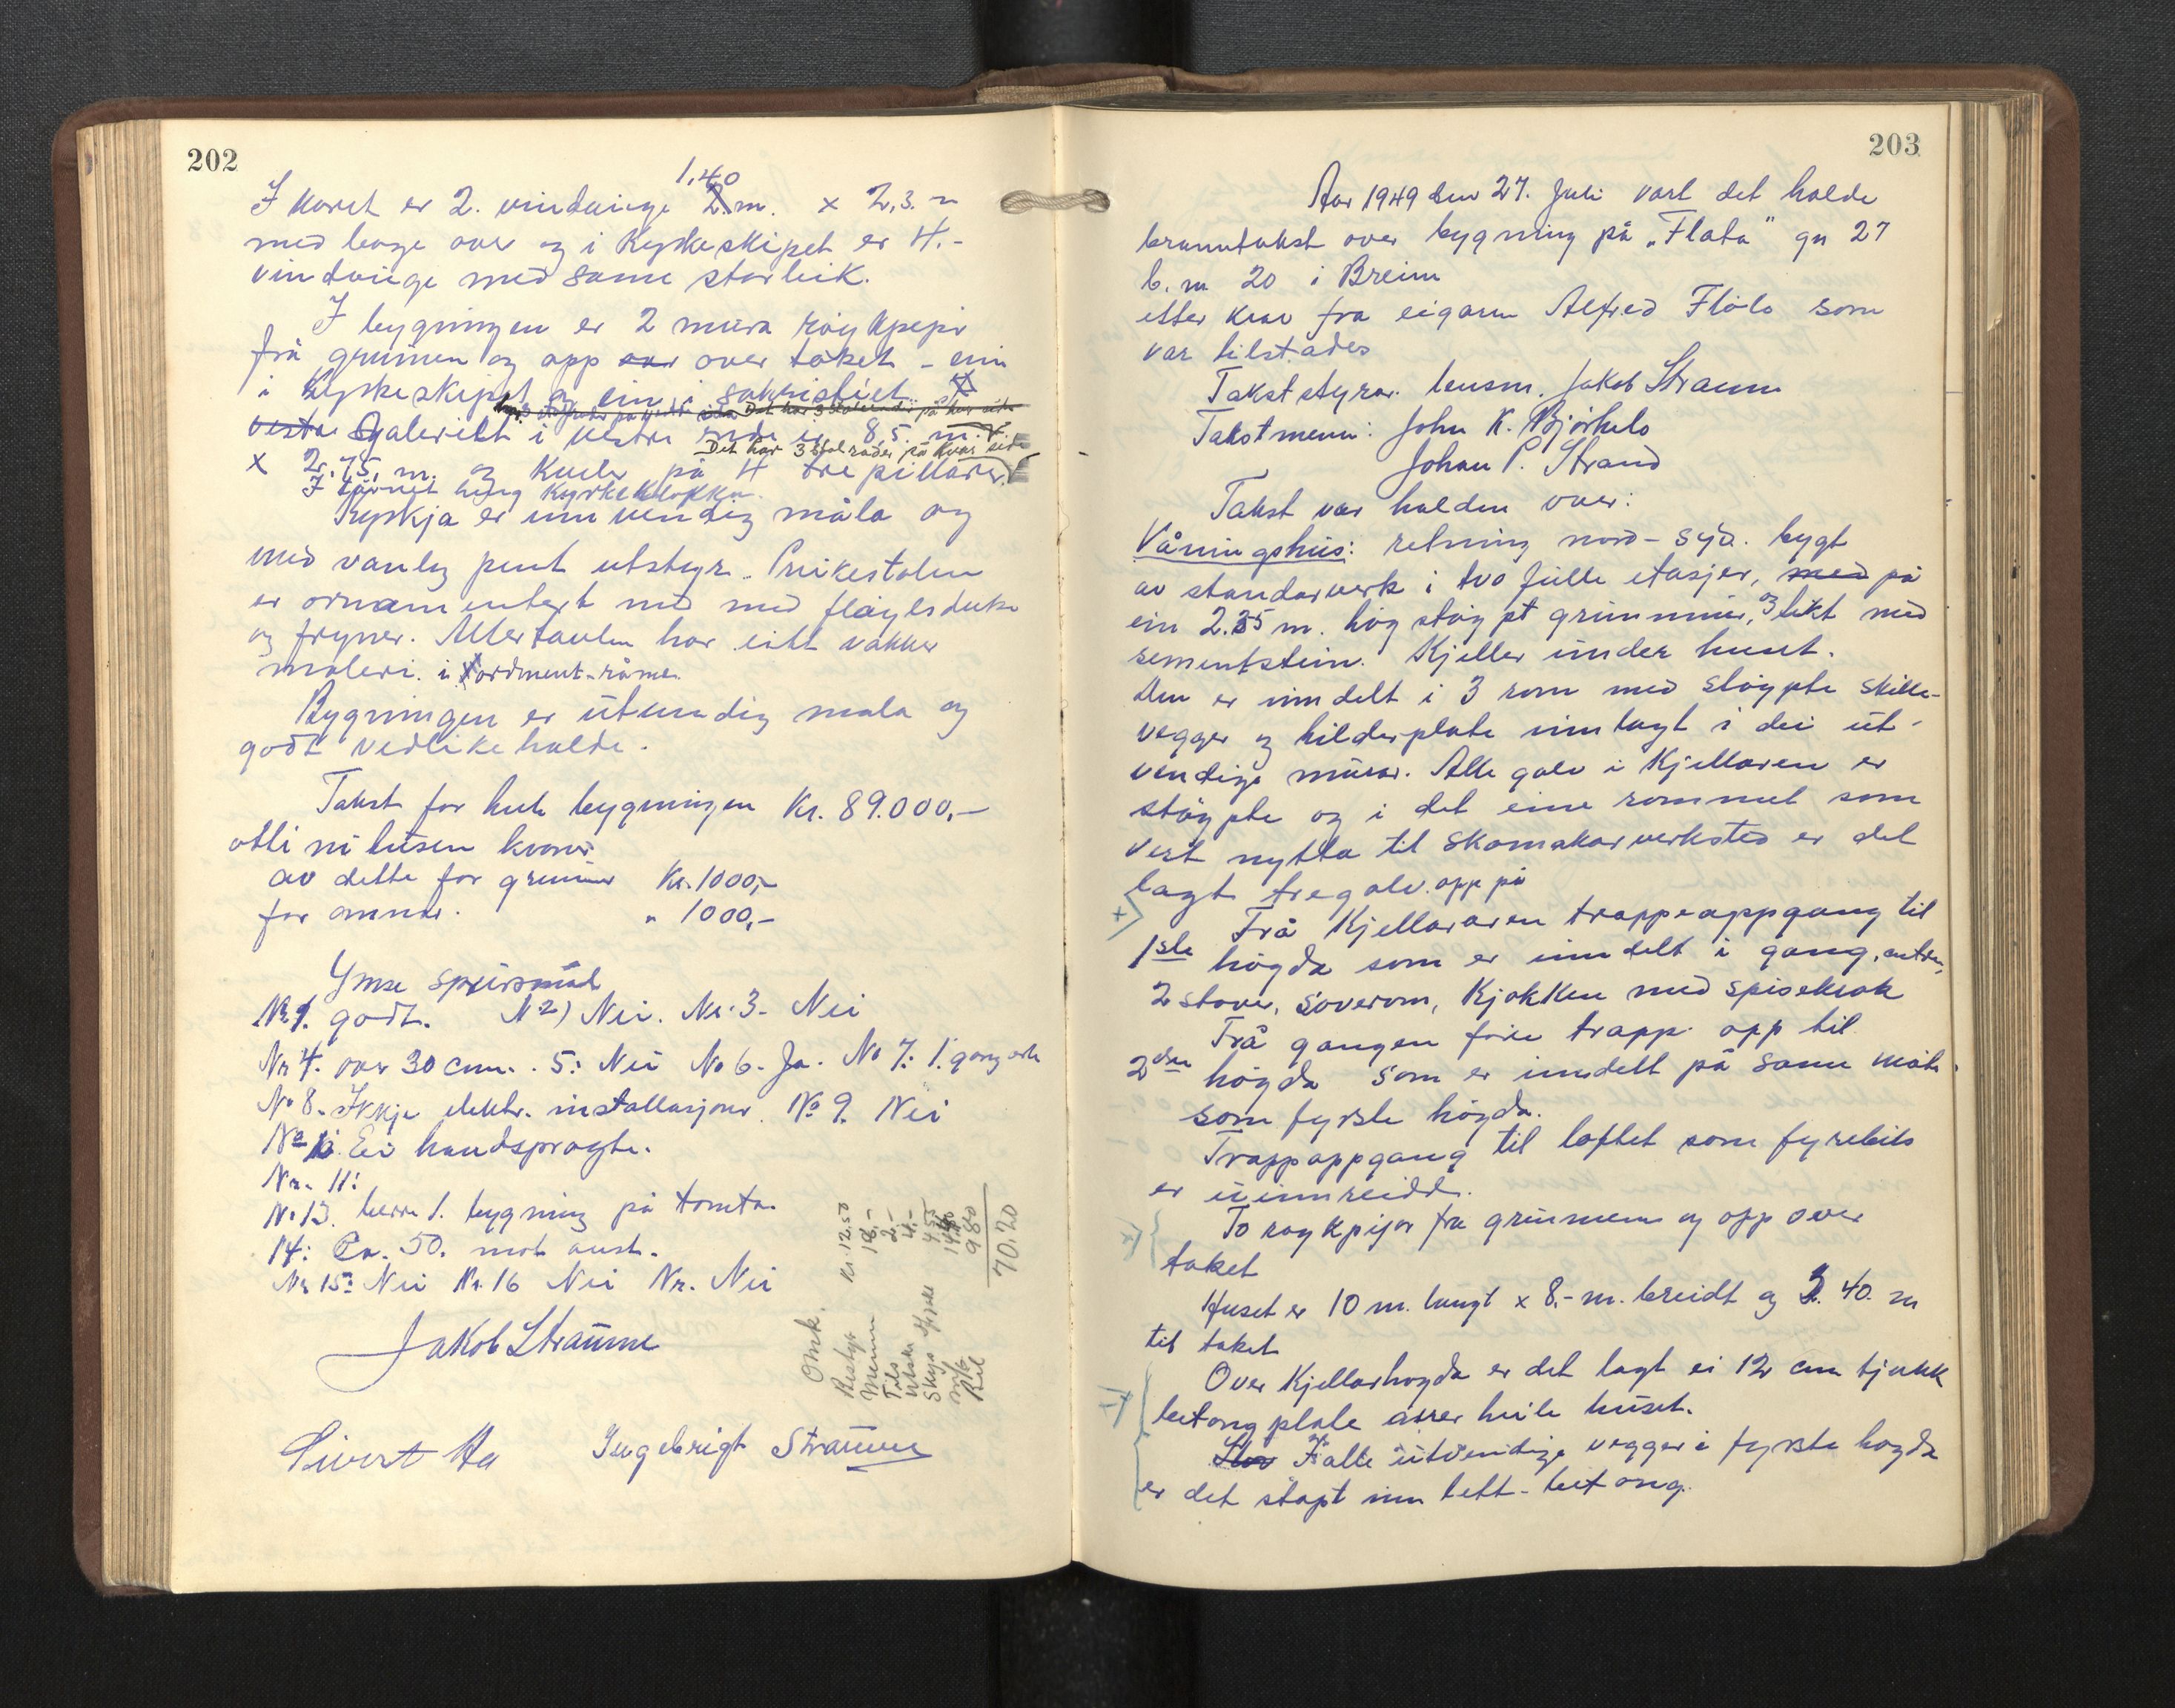 202
1,40
I koret er 2. vindauge 2. m. x 2,3. m
med boge over og i Kyrkeskipet er 4.-
vindauge med same storleik.
I bygningen er 2 mura røykpipe
frå grunnen og opp over taket - ein
i Kyrkeskipet og ein i sakristiet
Det har 3 stolrader på kvar side
vestre Galeriet i vestre ende er 8,5. m.
Det har 3 stolrader på kvar side
x 2,75, m. og kviler på 4 trepillarer.
I tårnet heng Kyrkeklokka.
Kyrkja er innvendig måla og
med vanleg pent utstyr. Preikestolen
er ornamentert med med fløyelsduke
og frynser. Altertavlen har eitt vakker
maleri. i ordment-råme.
Bygningen er utvendig mala og
godt vedlikehalde.
Takst for heile bygningen Kr. 89.000,-
otti ni tusen kroner
av dette for grunnmur Kr. 1000,-
for omnar. " 1000,-
Ymse spursmål
Nr 1. godt. N 2) Nei. Nr. 3. Nei
Nr 4. over 30 cm. . 5: Nei No 6. Ja. No 7. 1. gong
No 8. Ikkje elektr. installasjonar. No 9. Nei
No 10. Ei handsprøyte.
Nr. 11:
No 13. berre 1. bygning på tomta.
14: Ca. 50. mot aust.
Nr 15: Nei Nr. 16 Nei Nr. Nei
Jakob Straume
Sivert Aa Ingebrigt Straume
Omk.
Bestyr Kr. 12.50
Menn 18,-
Tils 2,-
Utskr 4,-
Skyss 4.55
Bil 9 80
70.20
203
Aar 1949 den 27. Juli vart det halde
branntakst over bygning på "Flata" gn 27
b. n 20 i Breim
etter krav fra eigaren Alfred Flølo som
var tilstades
Takststyrar. lensm. Jakob Straume
Takstmenn: John K. Bjørhelo
Johan P. Strand
Takst var halden over:
Våningshus: retning nord - syd. bygt
av standarverk i tvo fulle etasjer, med på
ein 2.35 m. høg støypt grunnmur, og tekt med
sementstein. Kjeller under huset.
Den er inndelt i 3 rom med støypte skille-
vegger og kilderplate innlagt i dei ut-
vendige murar. Alle golv i Kjellaren er
støypte og i det eine rommet som
vert nytta til skomakarverksted er det
lagt tregolv. opp på
Frå Kjellararen trappeoppgang til
1ste høgda som er inndelt i gang, entre,
2 stover, soverom, Kjøkken med spisekrok
Frå gangen fører trapp opp til
2den høgda som er inndelt på same måte
som fyrste høgda.
Trappoppgang til loftet som fyrebils
er uinnreidd.
To røykpipor fra grunnen og opp over
taket
Huset er 10 m. langt x 8,- m. breidt og 5. 40. m
til taket
Over Kjellarhøgda er det lagt ei 12 cm tjukk
betongplate over heile huset.
I alle utvendige vegger i fyrste høgda
er det støpt inn lett-betong.